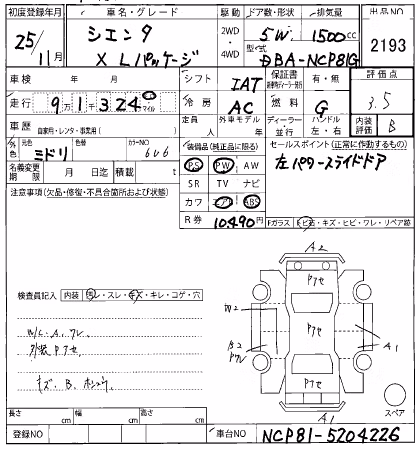 初度登録年月 車名・グレード 駆動 ドア数・形状 排気量 出品NO
25/11月 シエンタ 2WD・4WD 5W 1500cc 2193
X Lパッケージ 型式 DBA-NCP81G
車検 年 月 シフト IAT 保証書 有・無 評価点
走行 9万1324 マイル 冷房 AC 燃料 G 3.5
車歴 自家用・レンタ・事業用( ) 定員 人 外車モデル 年 ディーラー 並行 ハンドル 左・右 内装評価 B
外色 元色 ミドリ 色替 カラーNO 6V6 装備品(純正品に限る) セールスポイント(正常に作動するもの)
名義変更期限 月 日迄 積載 t PS PW AW 左パワースライドドア
注意事項(欠品・修復・不具合箇所および状態) SR TV ナビ
カワ エアB ABS
R券 10,490円 Fガラス トビ石・キズ・ヒビ・ワレ・リペア跡
A2
Pアセ
検査員記入 内装 汚レ・スレ・キズ・キレ・コゲ・穴
W2
W/C.A.ワレ Pアセ
外装Pアセ B2 Pワレ A1
キズ.B.ホシュウ Pアセ
スペア
長さ cm 幅 cm 高さ cm A1
登録NO 車台NO NCP81-5204226